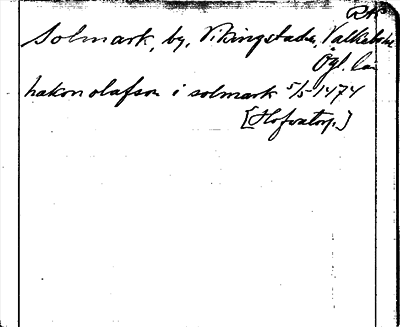 RAP
Solmark, by, Vikingstads, Valkebo
Ögl. län
hakon olafson i solmark 5/5 1474
[Hofvatorp.]